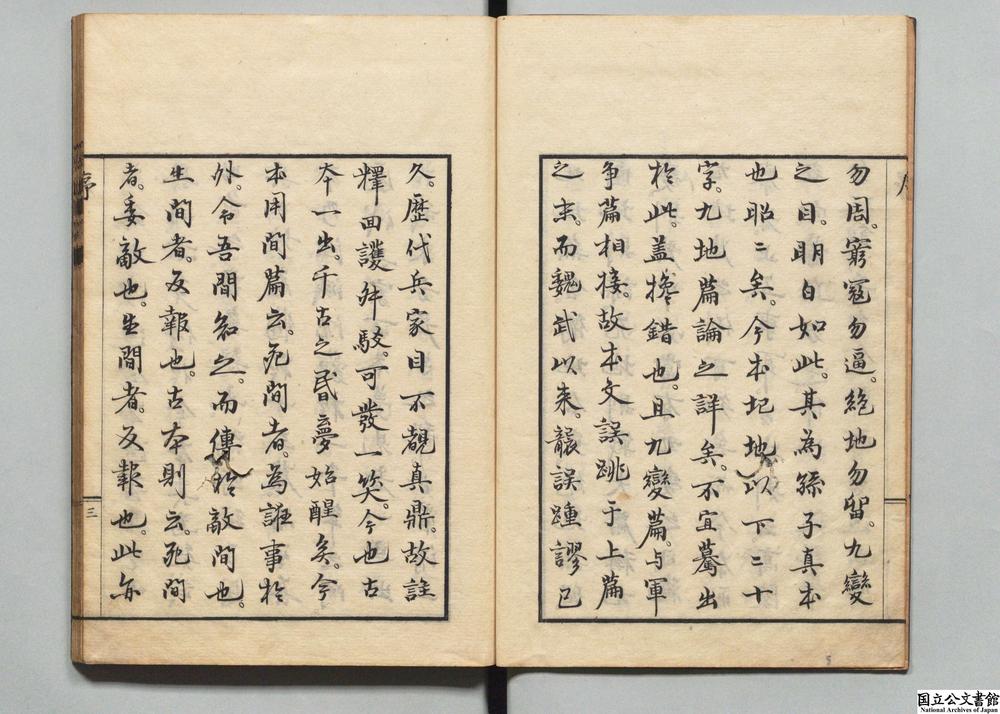 勿周。窮寇勿逼。絶地勿留。九變
之目。明白如此。其為孫子真本
也昭〻矣。今本圮地以下二十
字。九地篇論之詳矣。不宜驀出
於此。盖攙錯也。且九變篇。与軍
争篇相接。故本文誤跳于上篇
之末。而魏武以来。襲誤踵謬已
久。歴代兵家目不覩真鼎。故註
釋回護舛駁。可發一笑。今也古
本一出。千古之昏夢始醒矣。今
本用間篇云。死間者。為誑事於
外。令吾間知之。而傳於敵間也。
生間者。反報也。古本則云。死間
者。委敵也。生間者。反報也。此亦
序
三
国立公文書館
National Archives of Japan